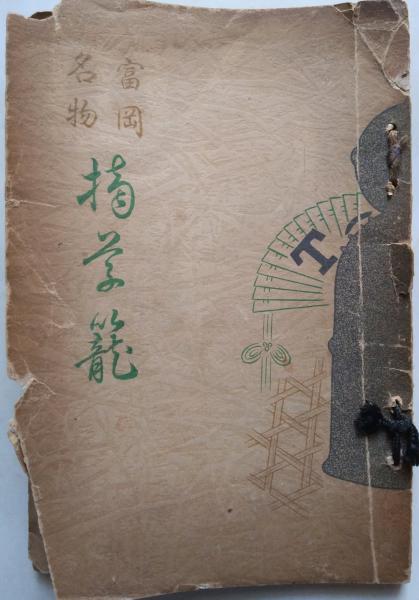 富岡
名物
摘草籠
T